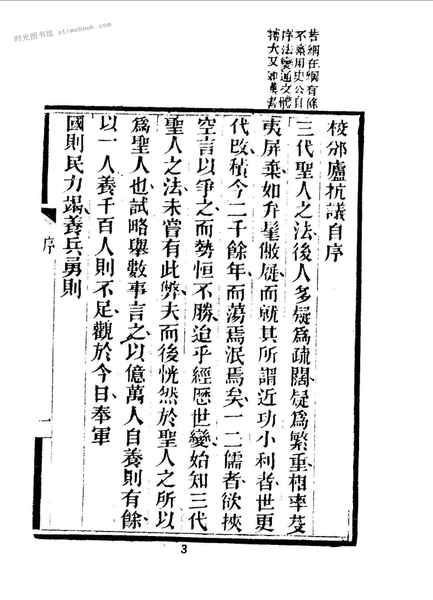 时光图书馆 stimebook.com
昔綱在綱有條
不棄用史公自
序法變通文體
補大又如漢書
校邠廬抗議自序
三代聖人之法後人多疑爲疏闊疑爲繁重相率芟
夷屏棄如弁髦敝屣而就其所謂近功小利者世更
代改積今二千餘年而蕩焉泯焉矣一二儒者欲挾
空言以爭之而勢恒不勝迨乎經歷世變始知三代
聖人之法未嘗有此弊夫而後恍然於聖人之所以
爲聖人也試略舉數事言之以億萬人自養則有餘
以一人養千百人則不足觀於今日奉軍
國則民力竭養兵勇則
序
一
3